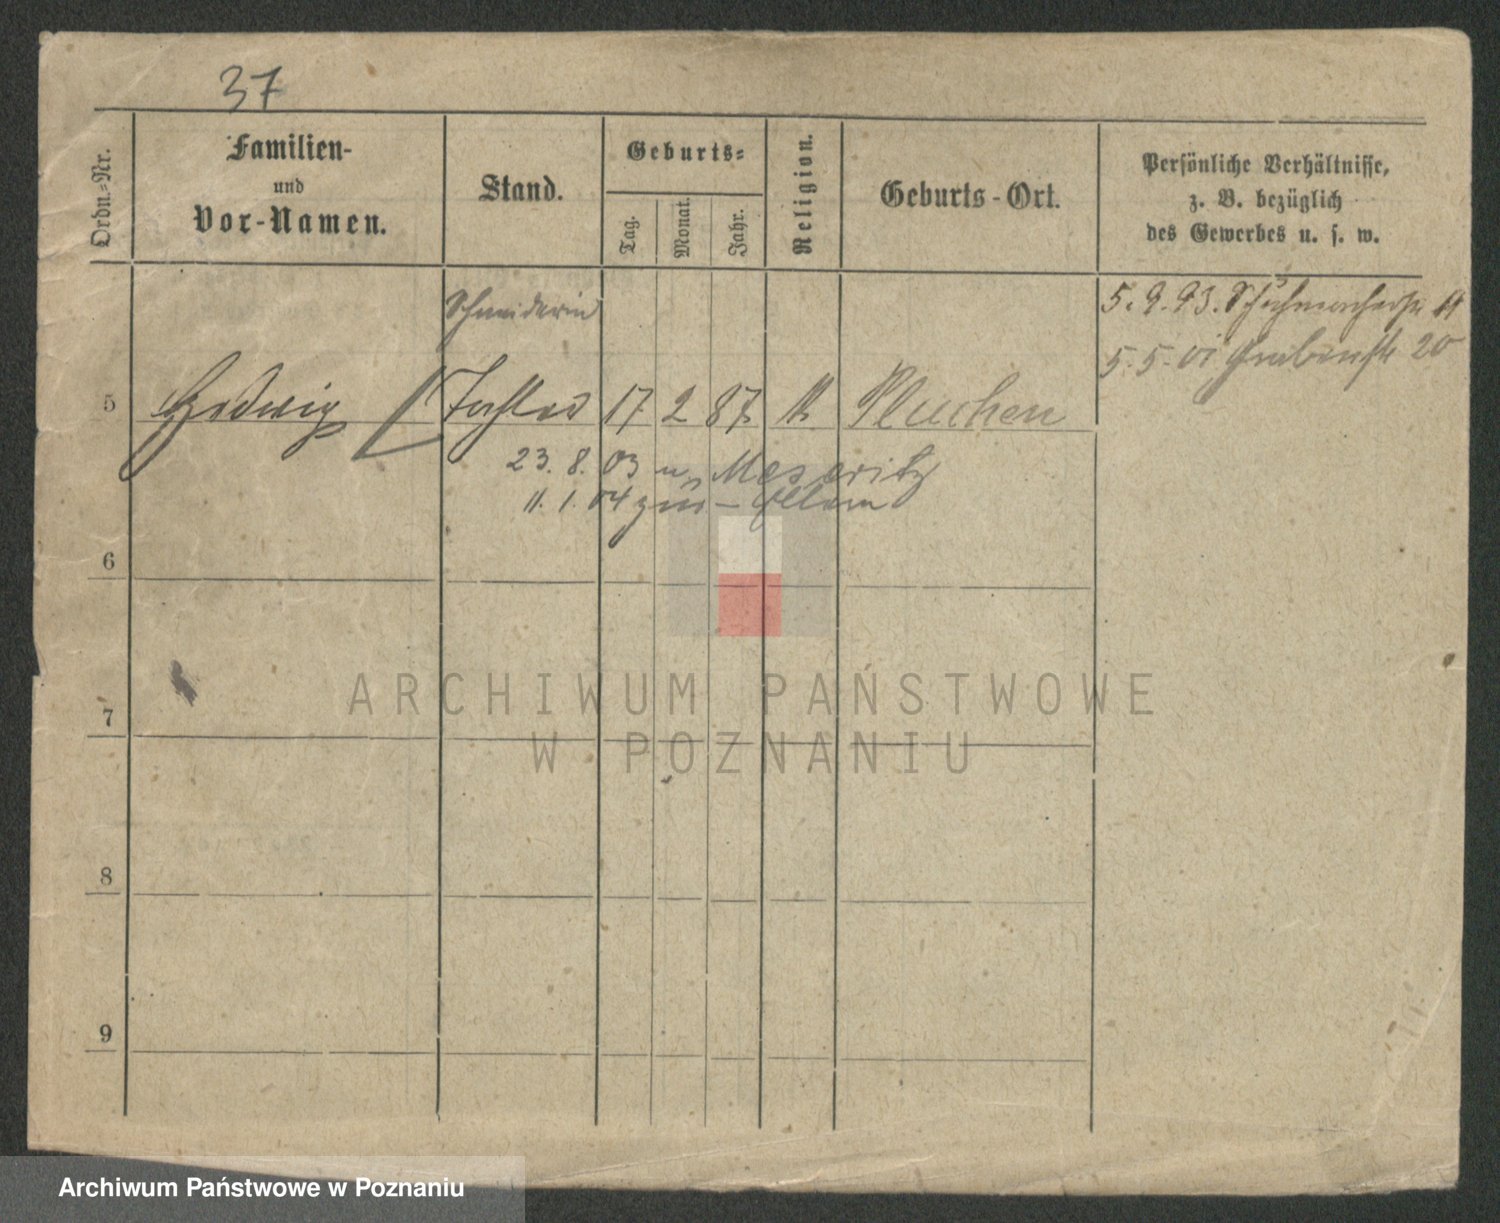 37
Ordn.-Nr.
Familien-
und
Vor-Namen.
Stand.
Geburts-
Tag.
Monat.
Jahr.
Religion.
Geburts-Ort.
Persönliche Verhältnisse,
z. B. bezüglich
des Gewerbes u. s. w.
Schneiderin
5. 9. 93. Schuhmacherstr
5. 5. 01 Grabenstr 20
5 Hedwig Tochter 17 2 87 Pluchen
23. 8. 03 n. Meseritz
11. 1. 04 zur-
6
ARCHIWUM PAŃSTWOWE
W POZNANIU
7
8
9
Archiwum Państwowe w Poznaniu